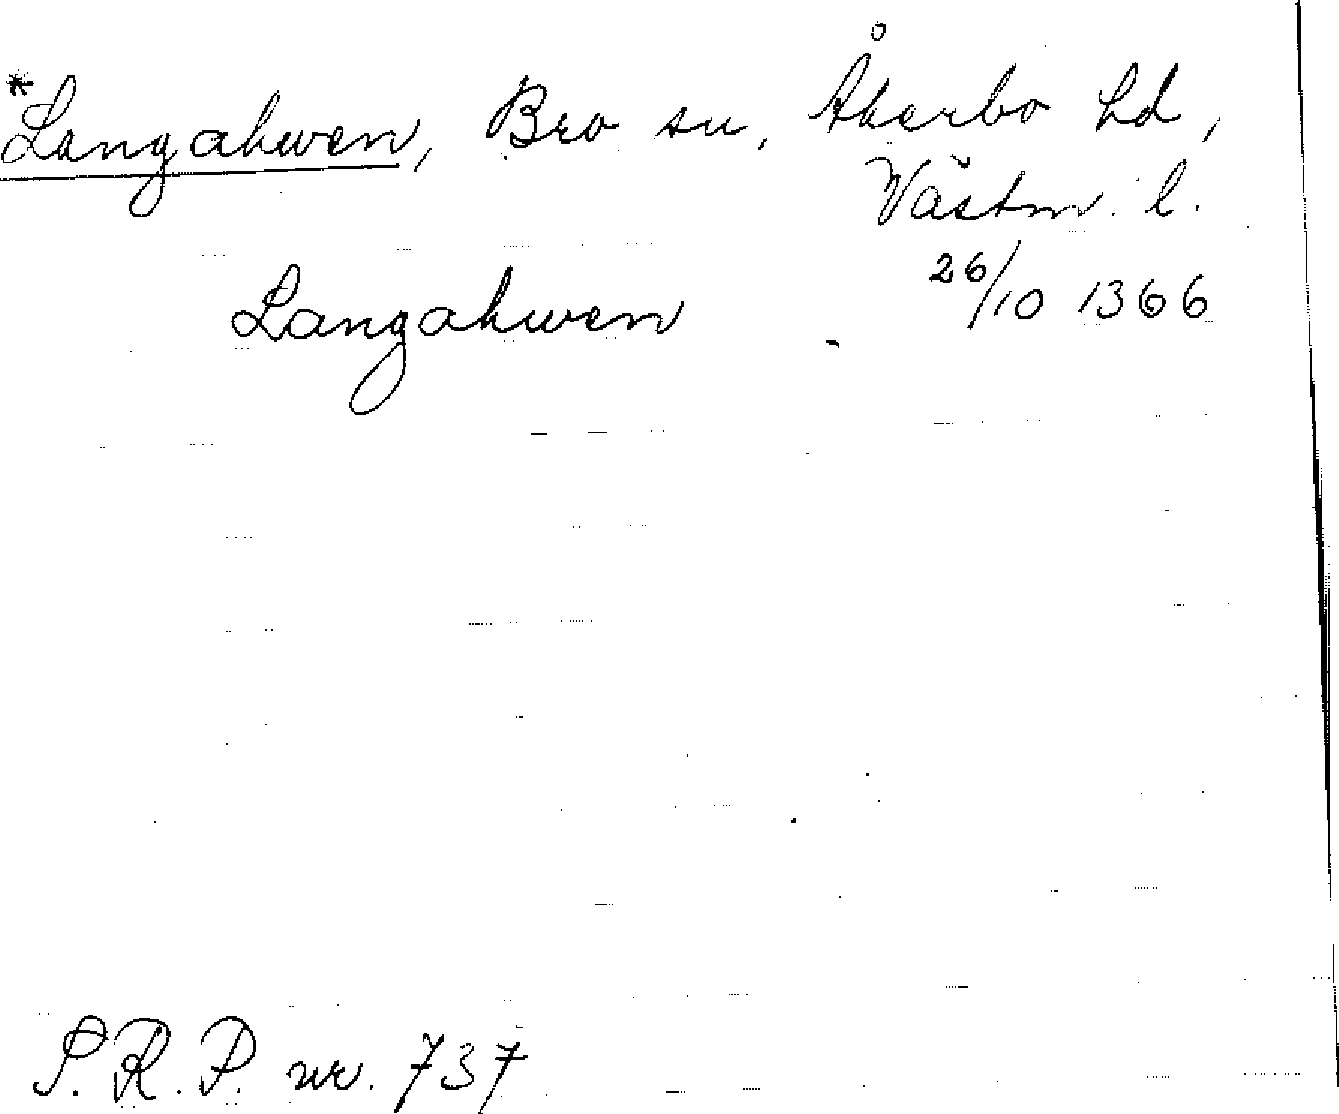 *Langahwen, Bro sn, Åkerbo hd,
Västm. l.
Langahwen 26/10 1366
S.R.P. nr. 737